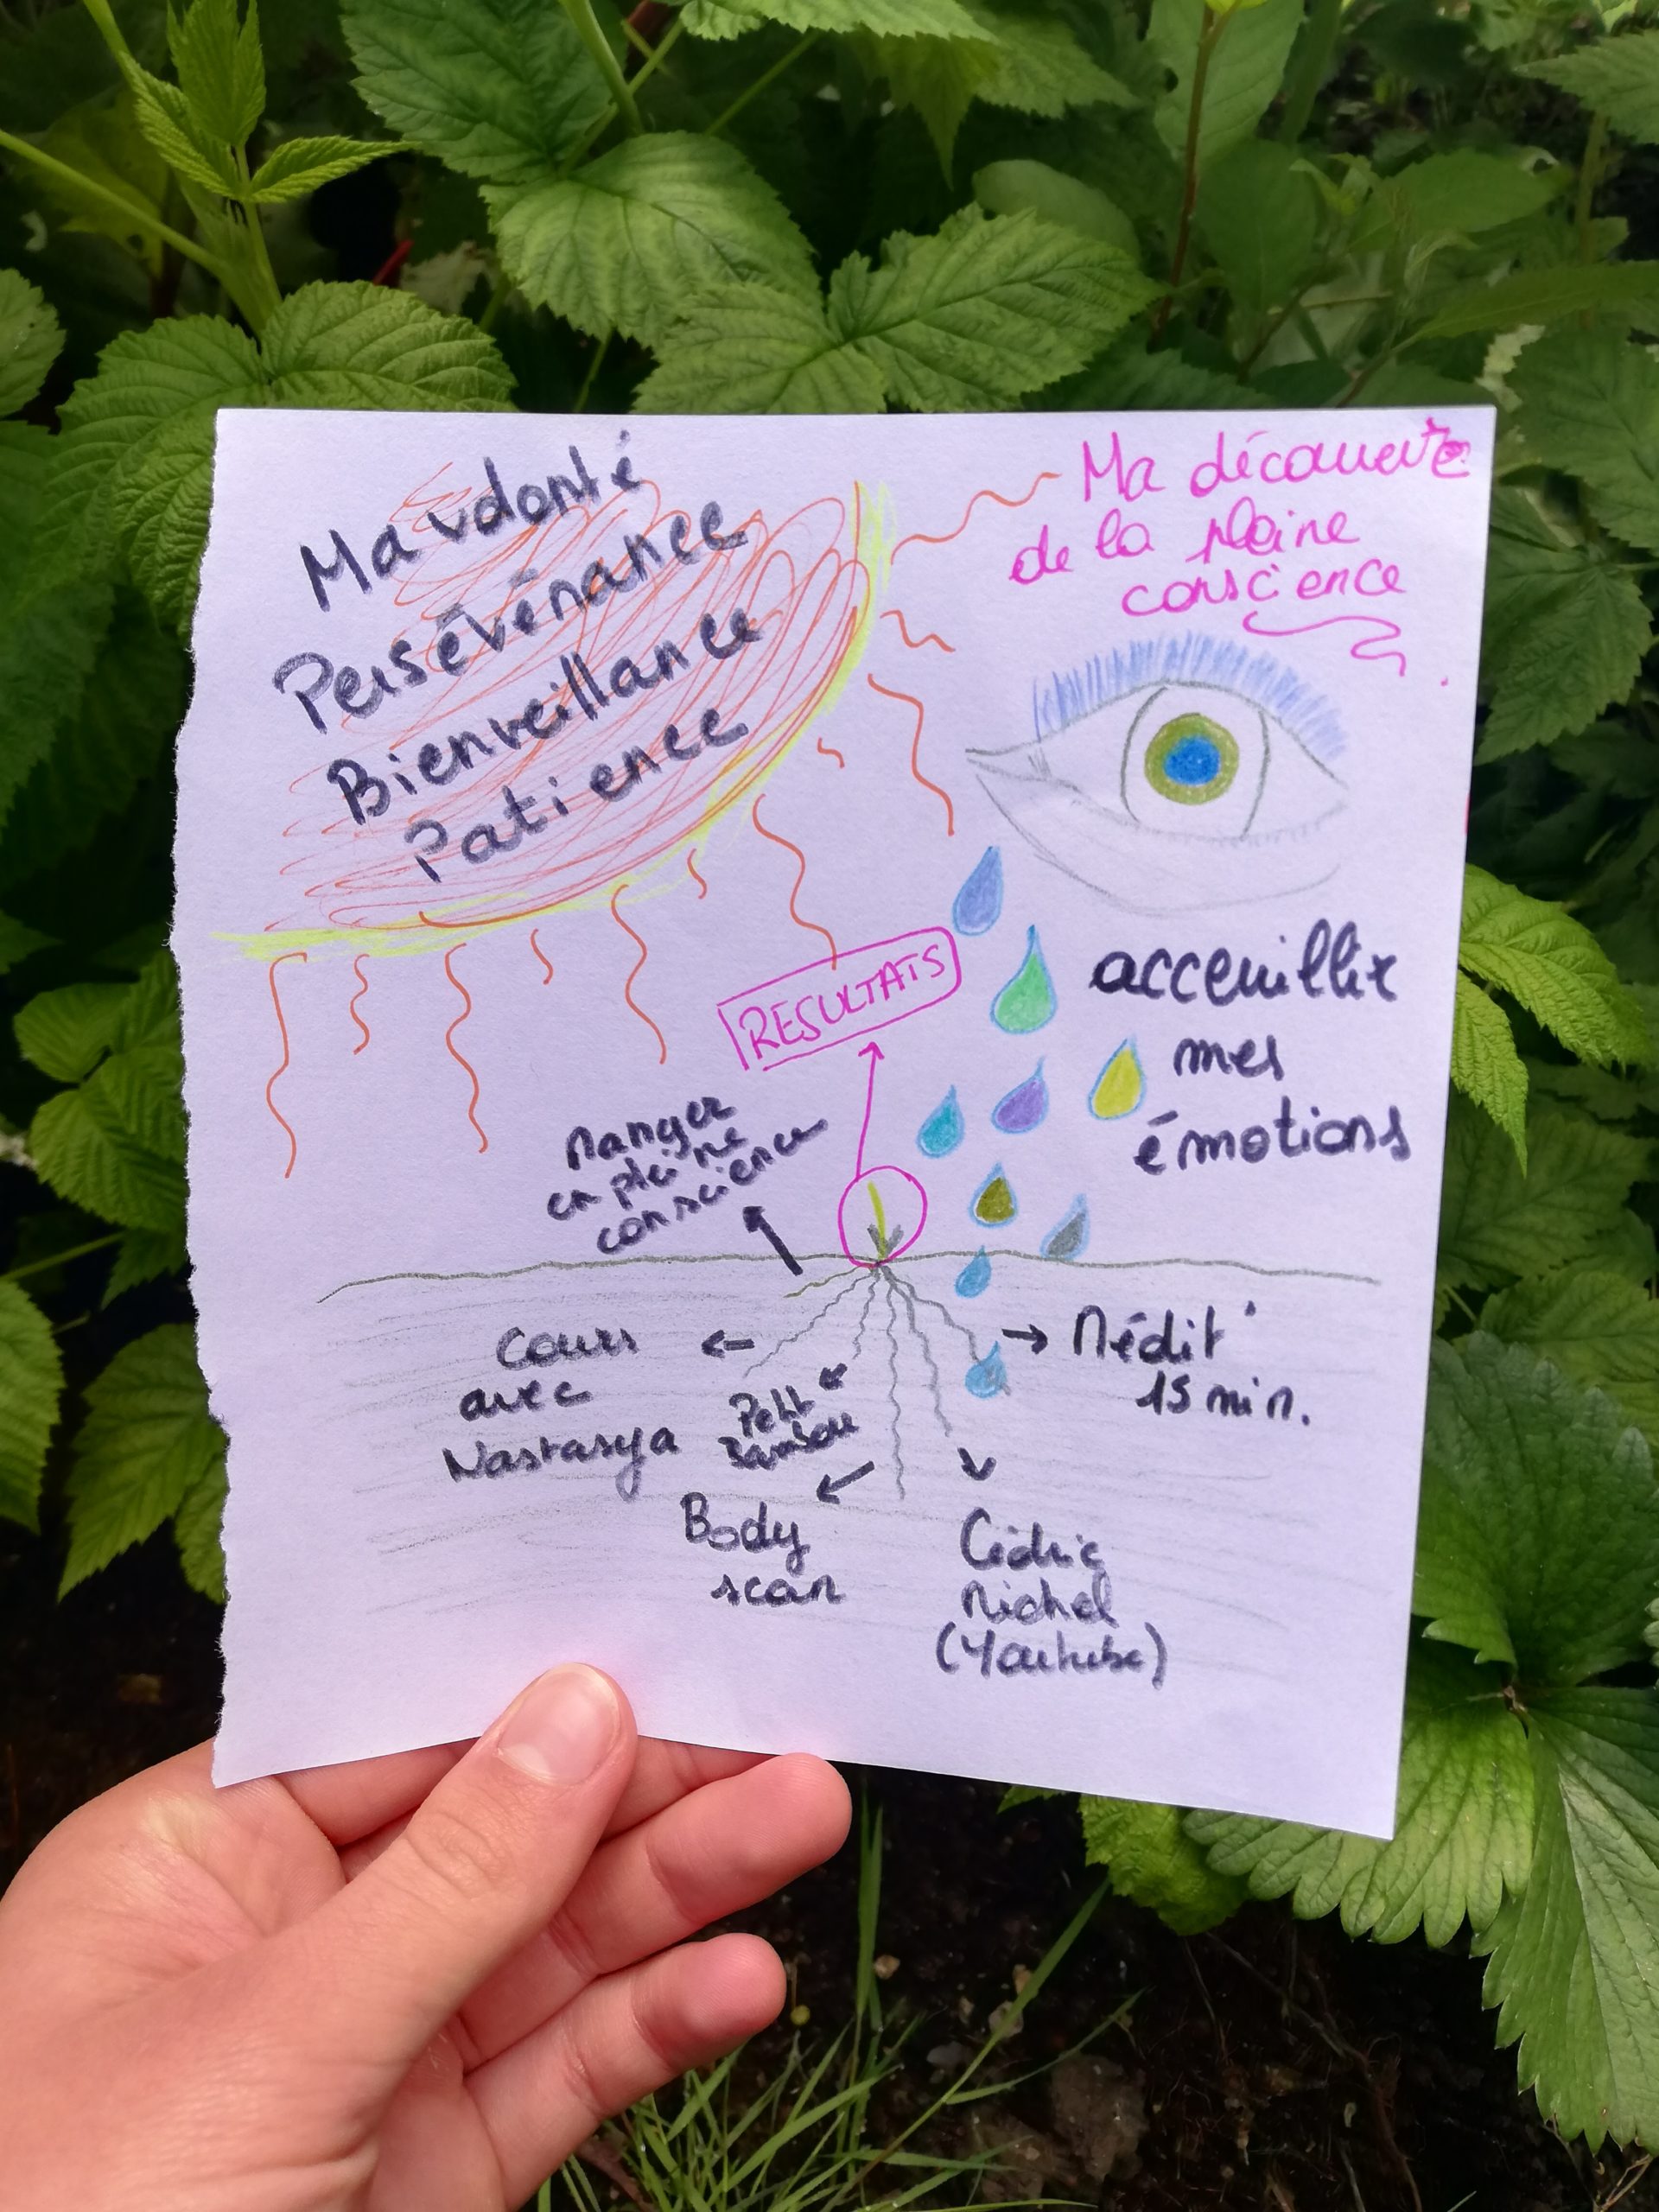 Ma volonté
Persévérance
Bienveillance
Patience
Ma découverte
de la pleine
conscience
RESULTATS
acceuillir
mes
émotions
Manger
en pleine
conscience
Cours
avec
Nastasya
Petit
Bambou
Médit°
15 min.
Body
scan
Cédric
Michel
(Youtube)